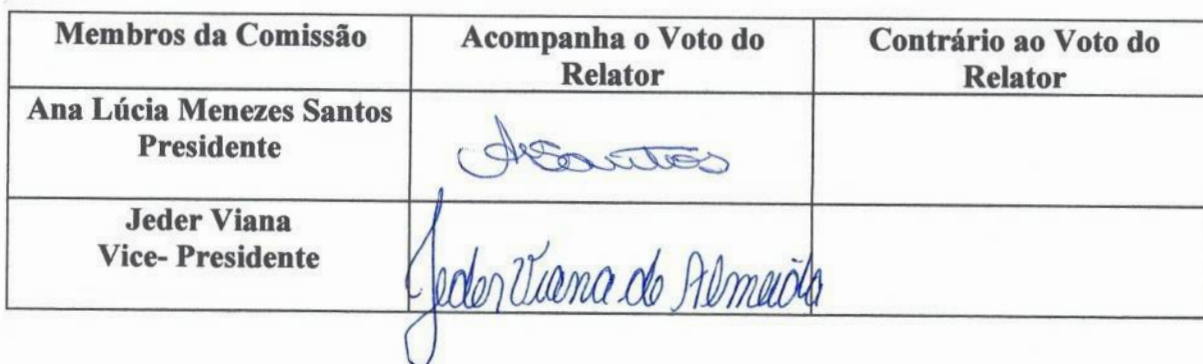 Membros da Comissão
Acompanha o Voto do
Relator
Contrário ao Voto do
Relator
Ana Lúcia Menezes Santos
Presidente
ALSantos
Jeder Viana
Vice- Presidente
Jeder Viana de Almeida